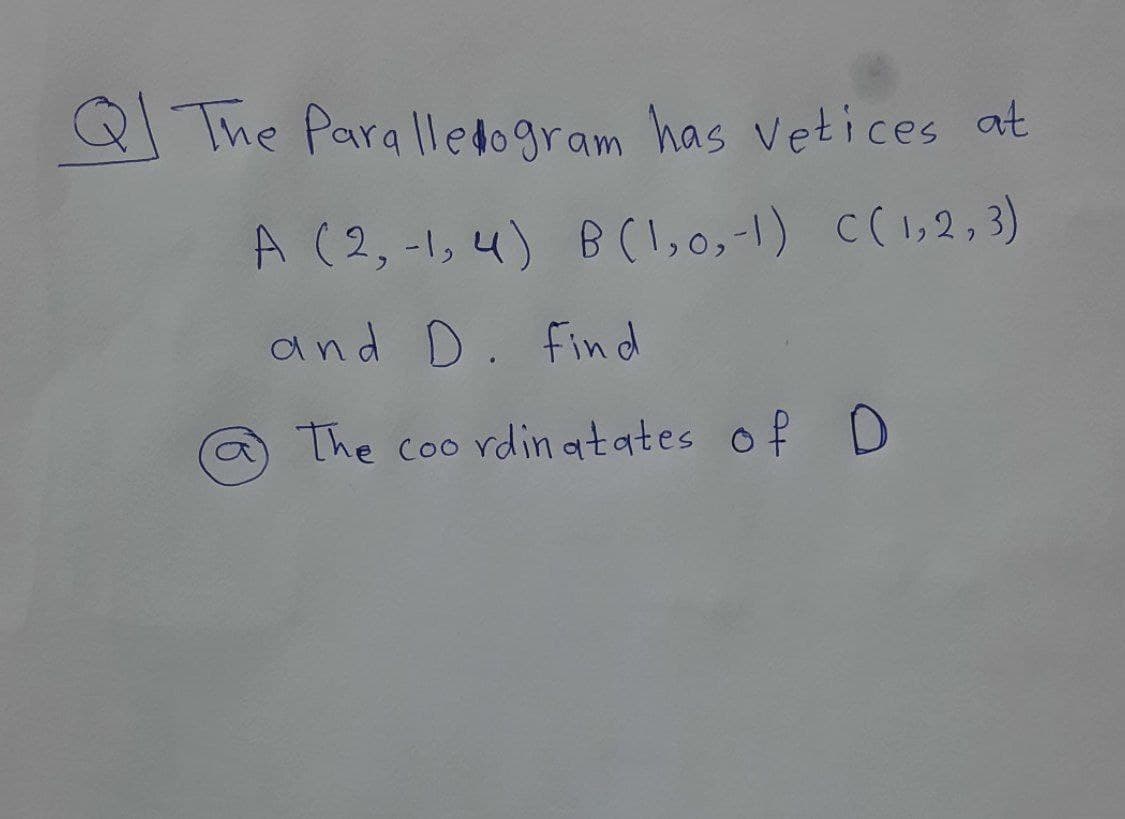 Q| The Paralledogram has vetices at
A (2, -1, 4) B(1,0,-1) C(1,2,3)
and D. find
ⓐ The coordinatates of D